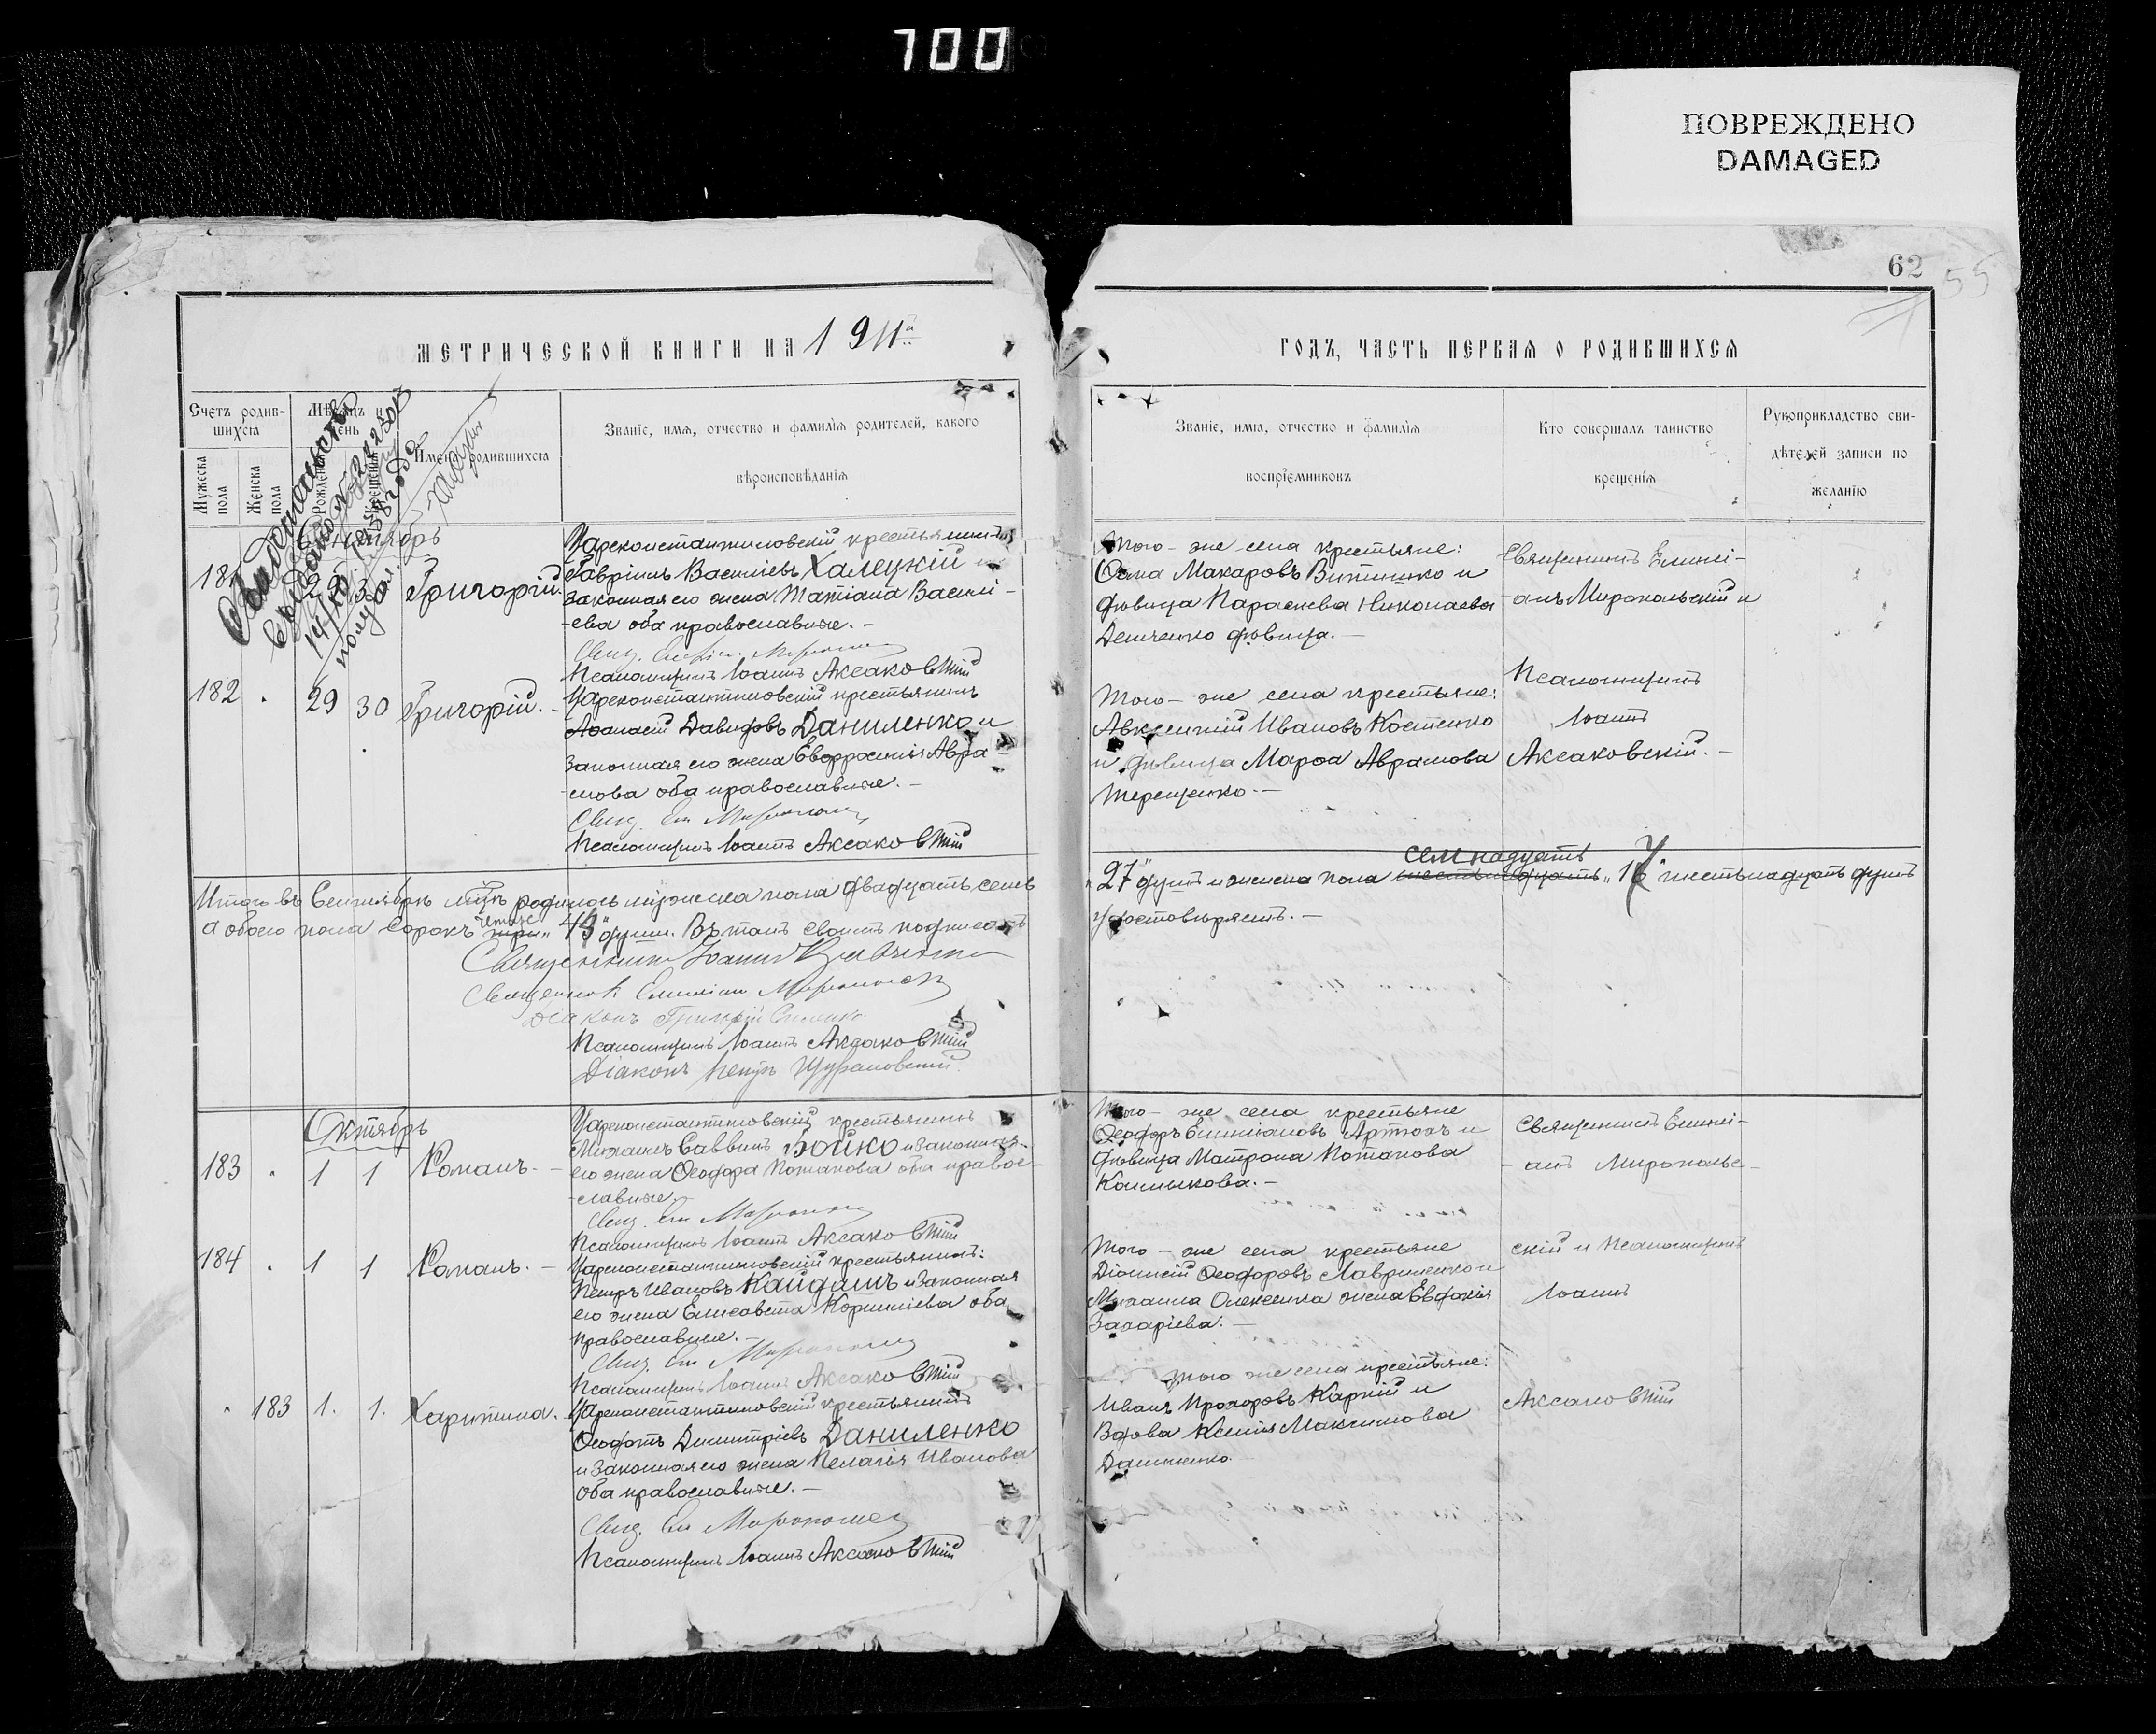 100
ПОВРЕЖДЕНО
DAMAGED
62
55
МЕТРИЧЕСКОЙ КНИГИ НА 1911й
ГОДЪ, ЧАСТЬ ПЕРВАЯ О РОДИВШИХСЯ
Счетъ родив-
шихся
Мужеска пола
Женска пола
Мѣсяцъ и
день
Рожденія
Крещенія
Имена родившихся
Званіе, имя, отчество и фамилія родителей, какого
вѣроисповѣданія
Званіе, имя, отчество и фамилія
воспріемниковъ
Кто совершалъ таинство
крещенія
Рукоприкладство сви-
дѣтелей записи по
желанію
Свидетельство
Сентябрь
181
29 30 Григорій.
Цареконстантиновскій крестьянинъ
Гавріилъ Василіевъ Халецкій и
законная его жена Татіана Василі-
ева оба православные. -
Псаломщикъ Іоаннъ Аксаковскій
Того-же села крестьяне:
Ѳома Макаровъ Витишко и
дѣвица Параскева Николаева
Демченко дѣвица. -
Священникъ Емилі-
анъ Миропольскій и
182 . 29 30 Григорій. -
Цареконстантиновскій крестьянинъ
Аѳанасій Давидовъ Даниленко и
законная его жена Евфросинія Авра-
мова оба православные. -
Псаломщикъ Іоаннъ Аксаковскій
Того-же села крестьяне:
Авксентій Ивановъ Костенко
и дѣвица Марѳа Аврамова
Терещенко. -
Псаломщикъ
Іоаннъ
Аксаковскій. -
Итого въ Сентябрѣ м-цѣ родилось мужеска пола двадцать семь
"27" душъ и женска пола семнадцать шестьнадцать "17" шестьнадцать душъ
а обоего пола сорокъ четыре три "44" души. Въ томъ своимъ подписомъ
удостовѣряемъ. -
Священникъ Іоаннъ
Священникъ Емиліанъ Миропольскій
Діаконъ Григорій
Псаломщикъ Іоаннъ Аксаковскій
Діаконъ Петръ Щурановскій
Октябрь
183 . 1 1 Романъ. -
Цареконстантиновскій крестьянинъ
Михаилъ Саввинъ Бойко и законная
его жена Ѳеодора Потапова оба право-
-славные. -
Псаломщикъ Іоаннъ Аксаковскій
Того-же села крестьяне
Ѳеодоръ Емиліановъ Артюхъ и
дѣвица Матрона Потапова
Калмыкова. -
Священникъ Емилі-
-анъ Миропольс-
184 . 1 1 Романъ. -
Цареконстантиновскій крестьянинъ:
Петръ Ивановъ Кайдашъ и законная
его жена Елисавета Корниліева оба
православные. -
Псаломщикъ Іоаннъ Аксаковскій
Того-же села крестьяне
Діонисій Ѳеодоровъ Лавриненко и
Михаила Олексенка жена Евдокія
Захаріева. -
скій и Псаломщикъ
Іоаннъ
. 183 1. 1. Харитина.
Цареконстантиновскій крестьянинъ
Ѳеодотъ Димитріевъ Даниленко
и законная его жена Пелагія Иванова
оба православные. -
Псаломщикъ Іоаннъ Аксаковскій
Того же села крестьяне:
Иванъ Прохоровъ Карній и
Вдова Ксенія Максимова
Аксаковскій